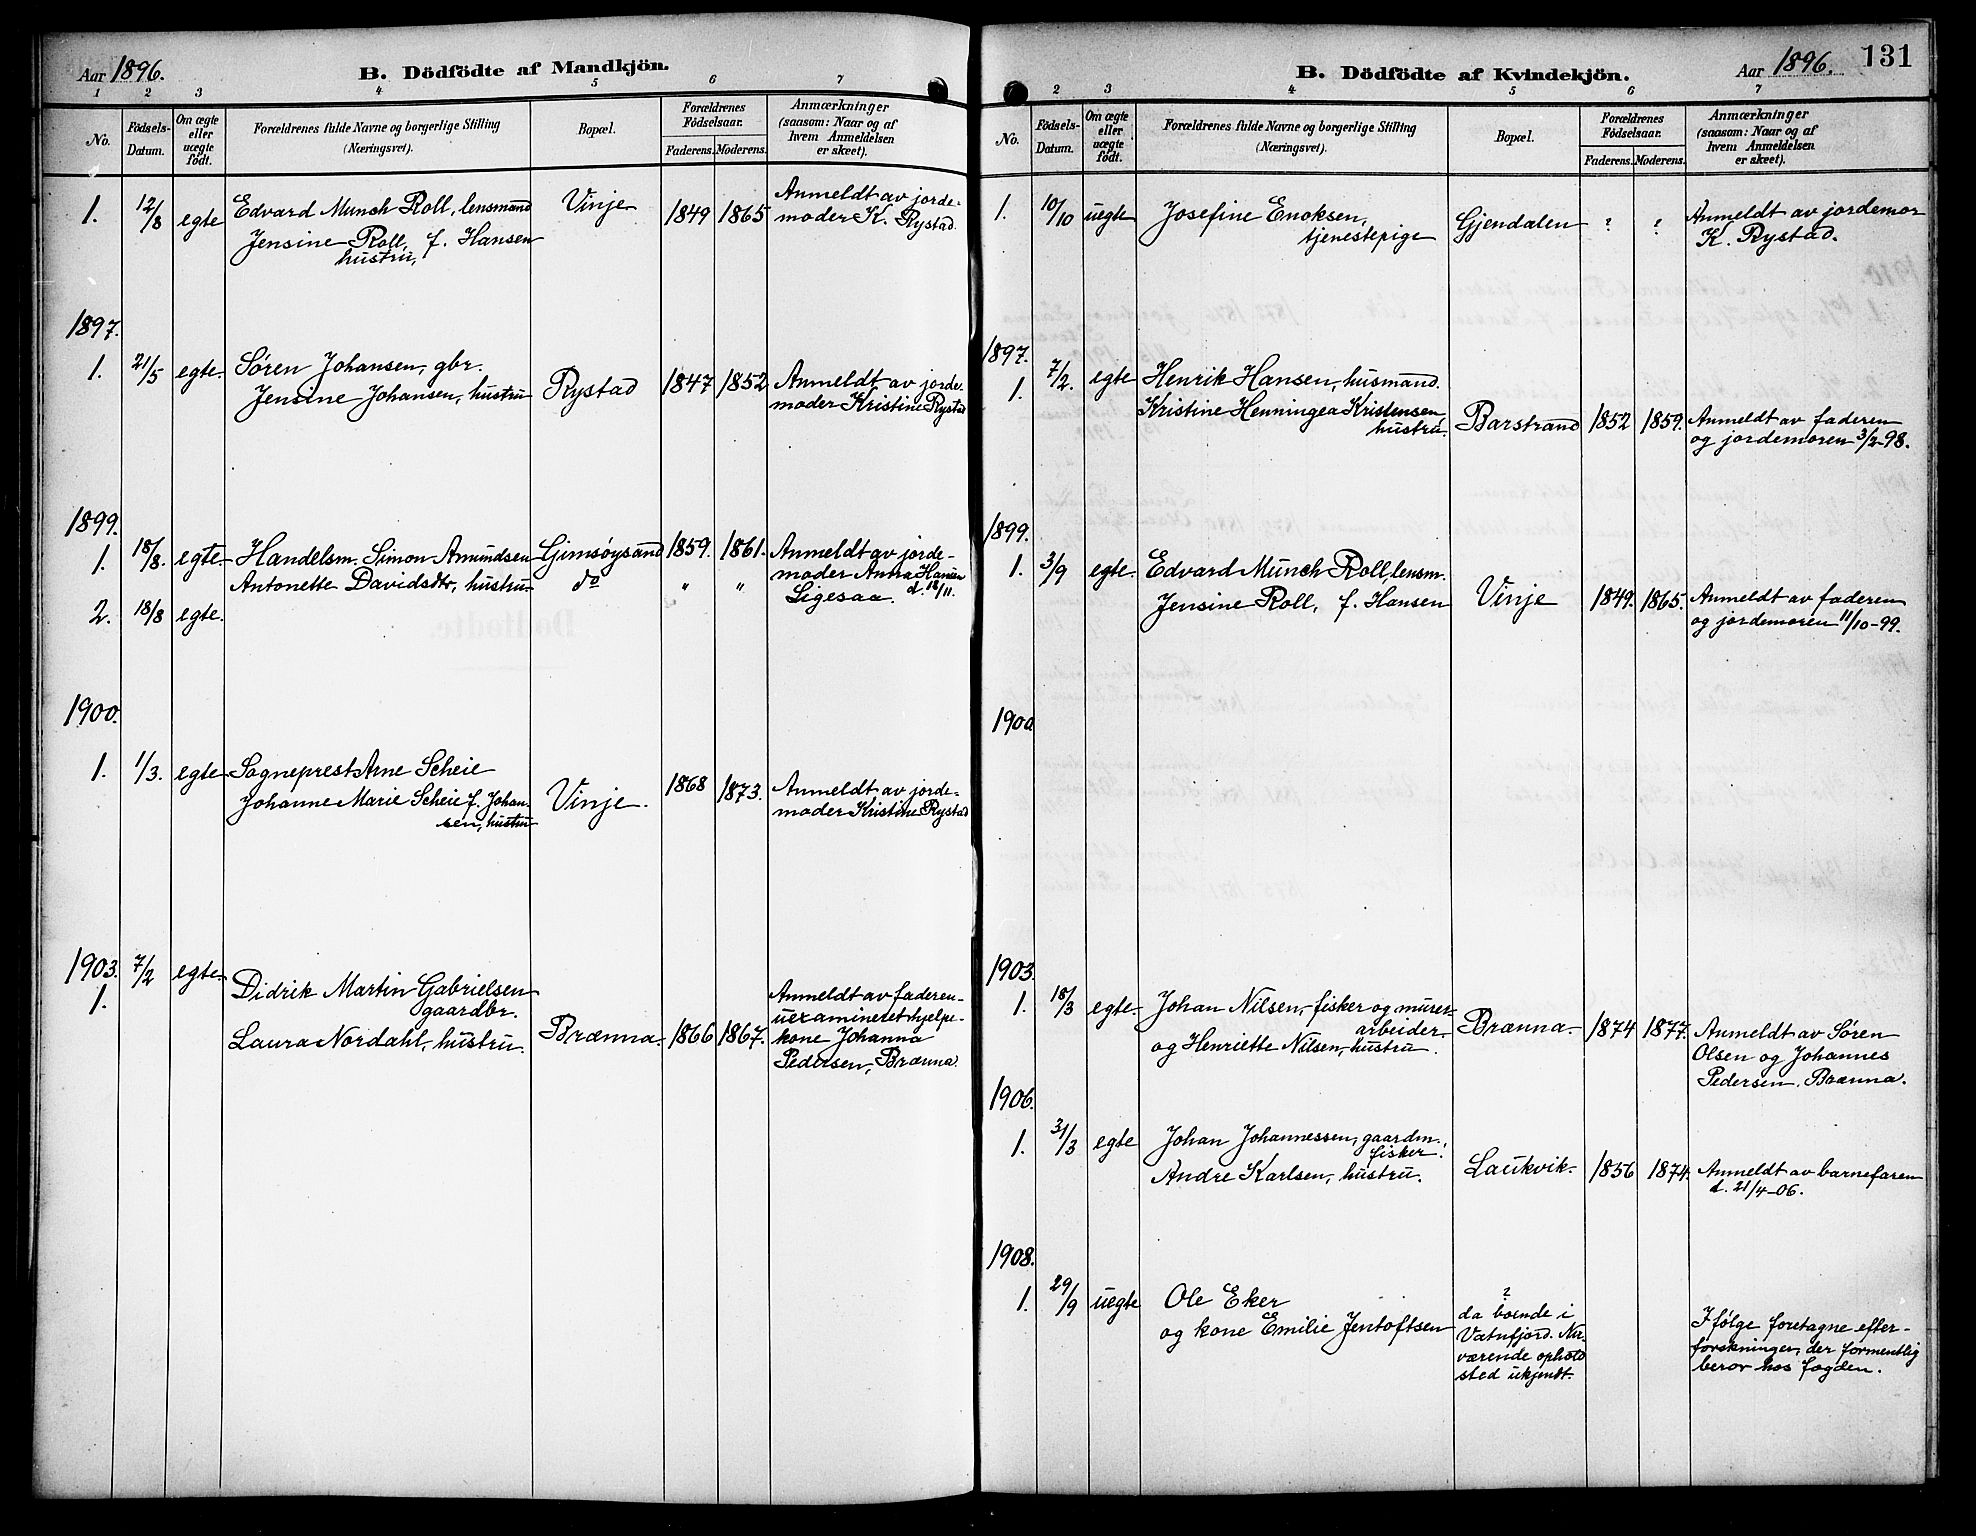 Aar 1896.
B. Dödfödte af Mandkjön.
1 2 3 4 5 6 7
No.
Födsels-
Datum.
Om ægte
eller
uægte
födt.
Forældrenes fulde Navne og borgerlige Stilling
(Næringsvei).
Bopæl.
Forældrenes
Födselsaar.
Faderens. Moderens.
Anmærkninger
(saasom: Naar og af
hvem Anmeldelsen
er skeet).
1. 12/8 egte Edvard Munch Roll, lensmand
Jensine Roll, f. Hansen
hustru,
Vinje 1849 1865 Anmeldt av jorde-
moder K. Rystad.
1897.
1. 21/5 egte. Søren Johansen, gbr.
Jensine Johansen, hustru
Rystad 1847 1852 Anmeldt av jorde-
moder Kristine Rystad
1899.
1. 18/8. egte. Handelsm. Simon Amundsen
Antonette Davidsdtr, hustru
Gimsøysand 1859. 1861. Anmeldt av jorde-
do " " moder Anna Hansen
Ligesaa. d. 18/11.
2. 18/8 egte.
1900.
1. 1/3. egte Sogneprest Arne Scheie
Johanne Marie Scheie f. Johan-
sen, hustru
Vinje. 1868 1873. Anmeldt av jorde-
moder Kristine Rystad
1903. 7/2 egte
1. Didrik Martin Gabrielsen
gaardbr.
Laura Nordahl, hustru.
Brænna. 1866 1867. Anmeldt av faderen-
uexamineret hjelpe-
kone Johanna
Pedersen, Brænna.
B. Dödfödte af Kvindekjön.
Aar 1896.
131
2 3 4 5 6 7
No.
Födsels-
Datum.
Om ægte
eller
uægte
födt.
Forældrenes fulde Navne og borgerlige Stilling
(Næringsvei).
Bopæl.
Forældrenes
Födselsaar.
Faderens. Moderens.
Anmærkninger
(saasom: Naar og af
hvem Anmeldelsen
er skeet).
1. 10/10 uegte Josefine Enoksen,
tjenestepige
Gjendalen ? ? Anmeldt av jordemor
K. Rystad.
1897.
1. 7/2. egte Henrik Hansen, husmand.
Kristine Henningea Kristensen,
hustru.
Barstrand 1852 1859. Anmeldt av faderen
og jordemoren 3/2-98.
1899.
1. 3/9 egte. Edvard Munch Roll, lensm.
Jensine Roll, f. Hansen
Vinje 1849. 1865. Anmeldt av faderen
og jordemoren 11/10-99.
1900
1903.
1. 18/3 egte. Johan Nilsen, fisker og murer-
arbeider.
og Henriette Nilsen, hustru.
Brænna. 1874 1877. Anmeldt av Søren
Olsen og Johannes
Pedersen, Brænna.
1906.
1. 31/3 egte Johan Johannessen, gaardm.,
fisker.
Andre Karlsen, hustru.
Laukvik. 1856 1874. Anmeldt av barnefaren
d. 21/4-06.
1908.
1. 29/9 uegte Ole Eker
og kone Emilie Jentoftsen
?
da boende i
Vatnfjord. Nu-
værende ophold
sted ukjendt.
Ifølge foretagne efter-
forskninger, der formentlig
beror hos fogden.